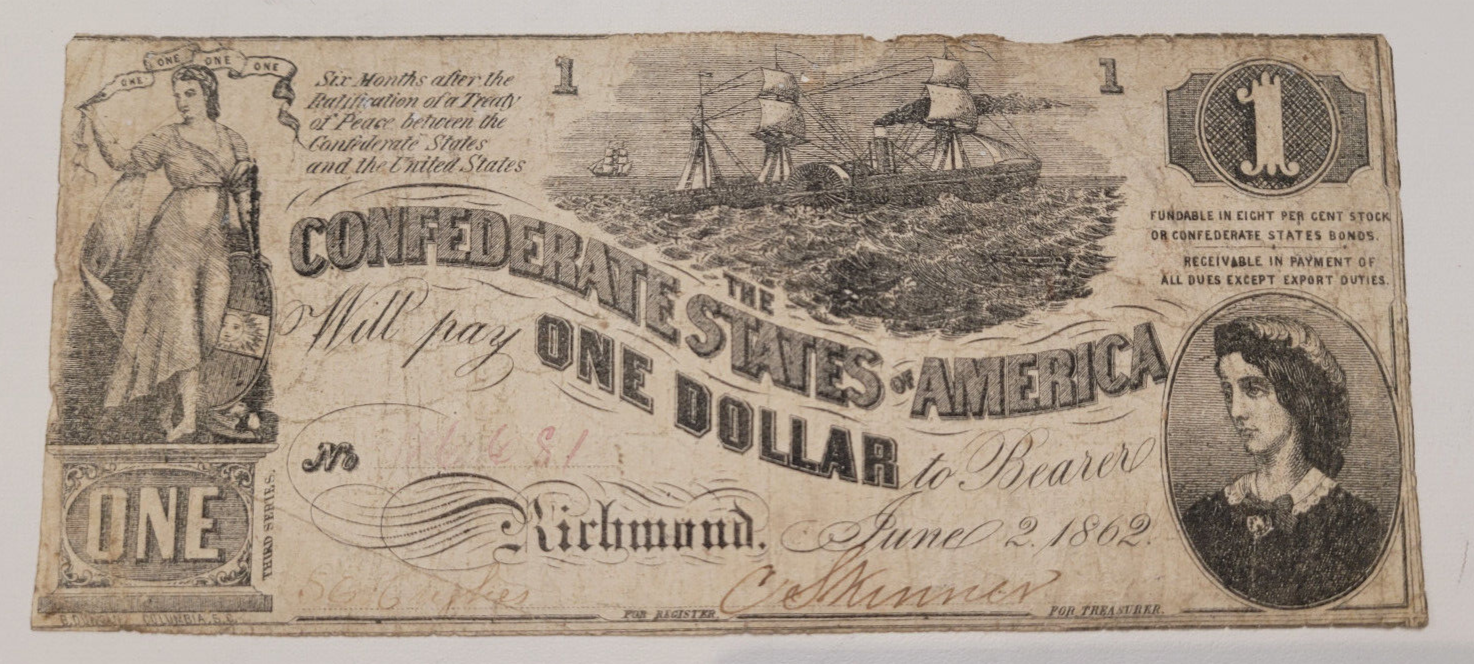 ONE ONE ONE ONE
Six Months after the
Ratification of a Treaty
of Peace between the
Confederate States
and the United States
1
1
1
FUNDABLE IN EIGHT PER CENT STOCK
OR CONFEDERATE STATES BONDS.
RECEIVABLE IN PAYMENT OF
ALL DUES EXCEPT EXPORT DUTIES.
THE
CONFEDERATE STATES OF AMERICA
Will pay ONE DOLLAR to Bearer
No
Richmond, June 2. 1862.
ONE
THIRD SERIES.
C Skinner
FOR REGISTER
FOR TREASURER.
B. DUNCAN COLUMBIA, S.C.